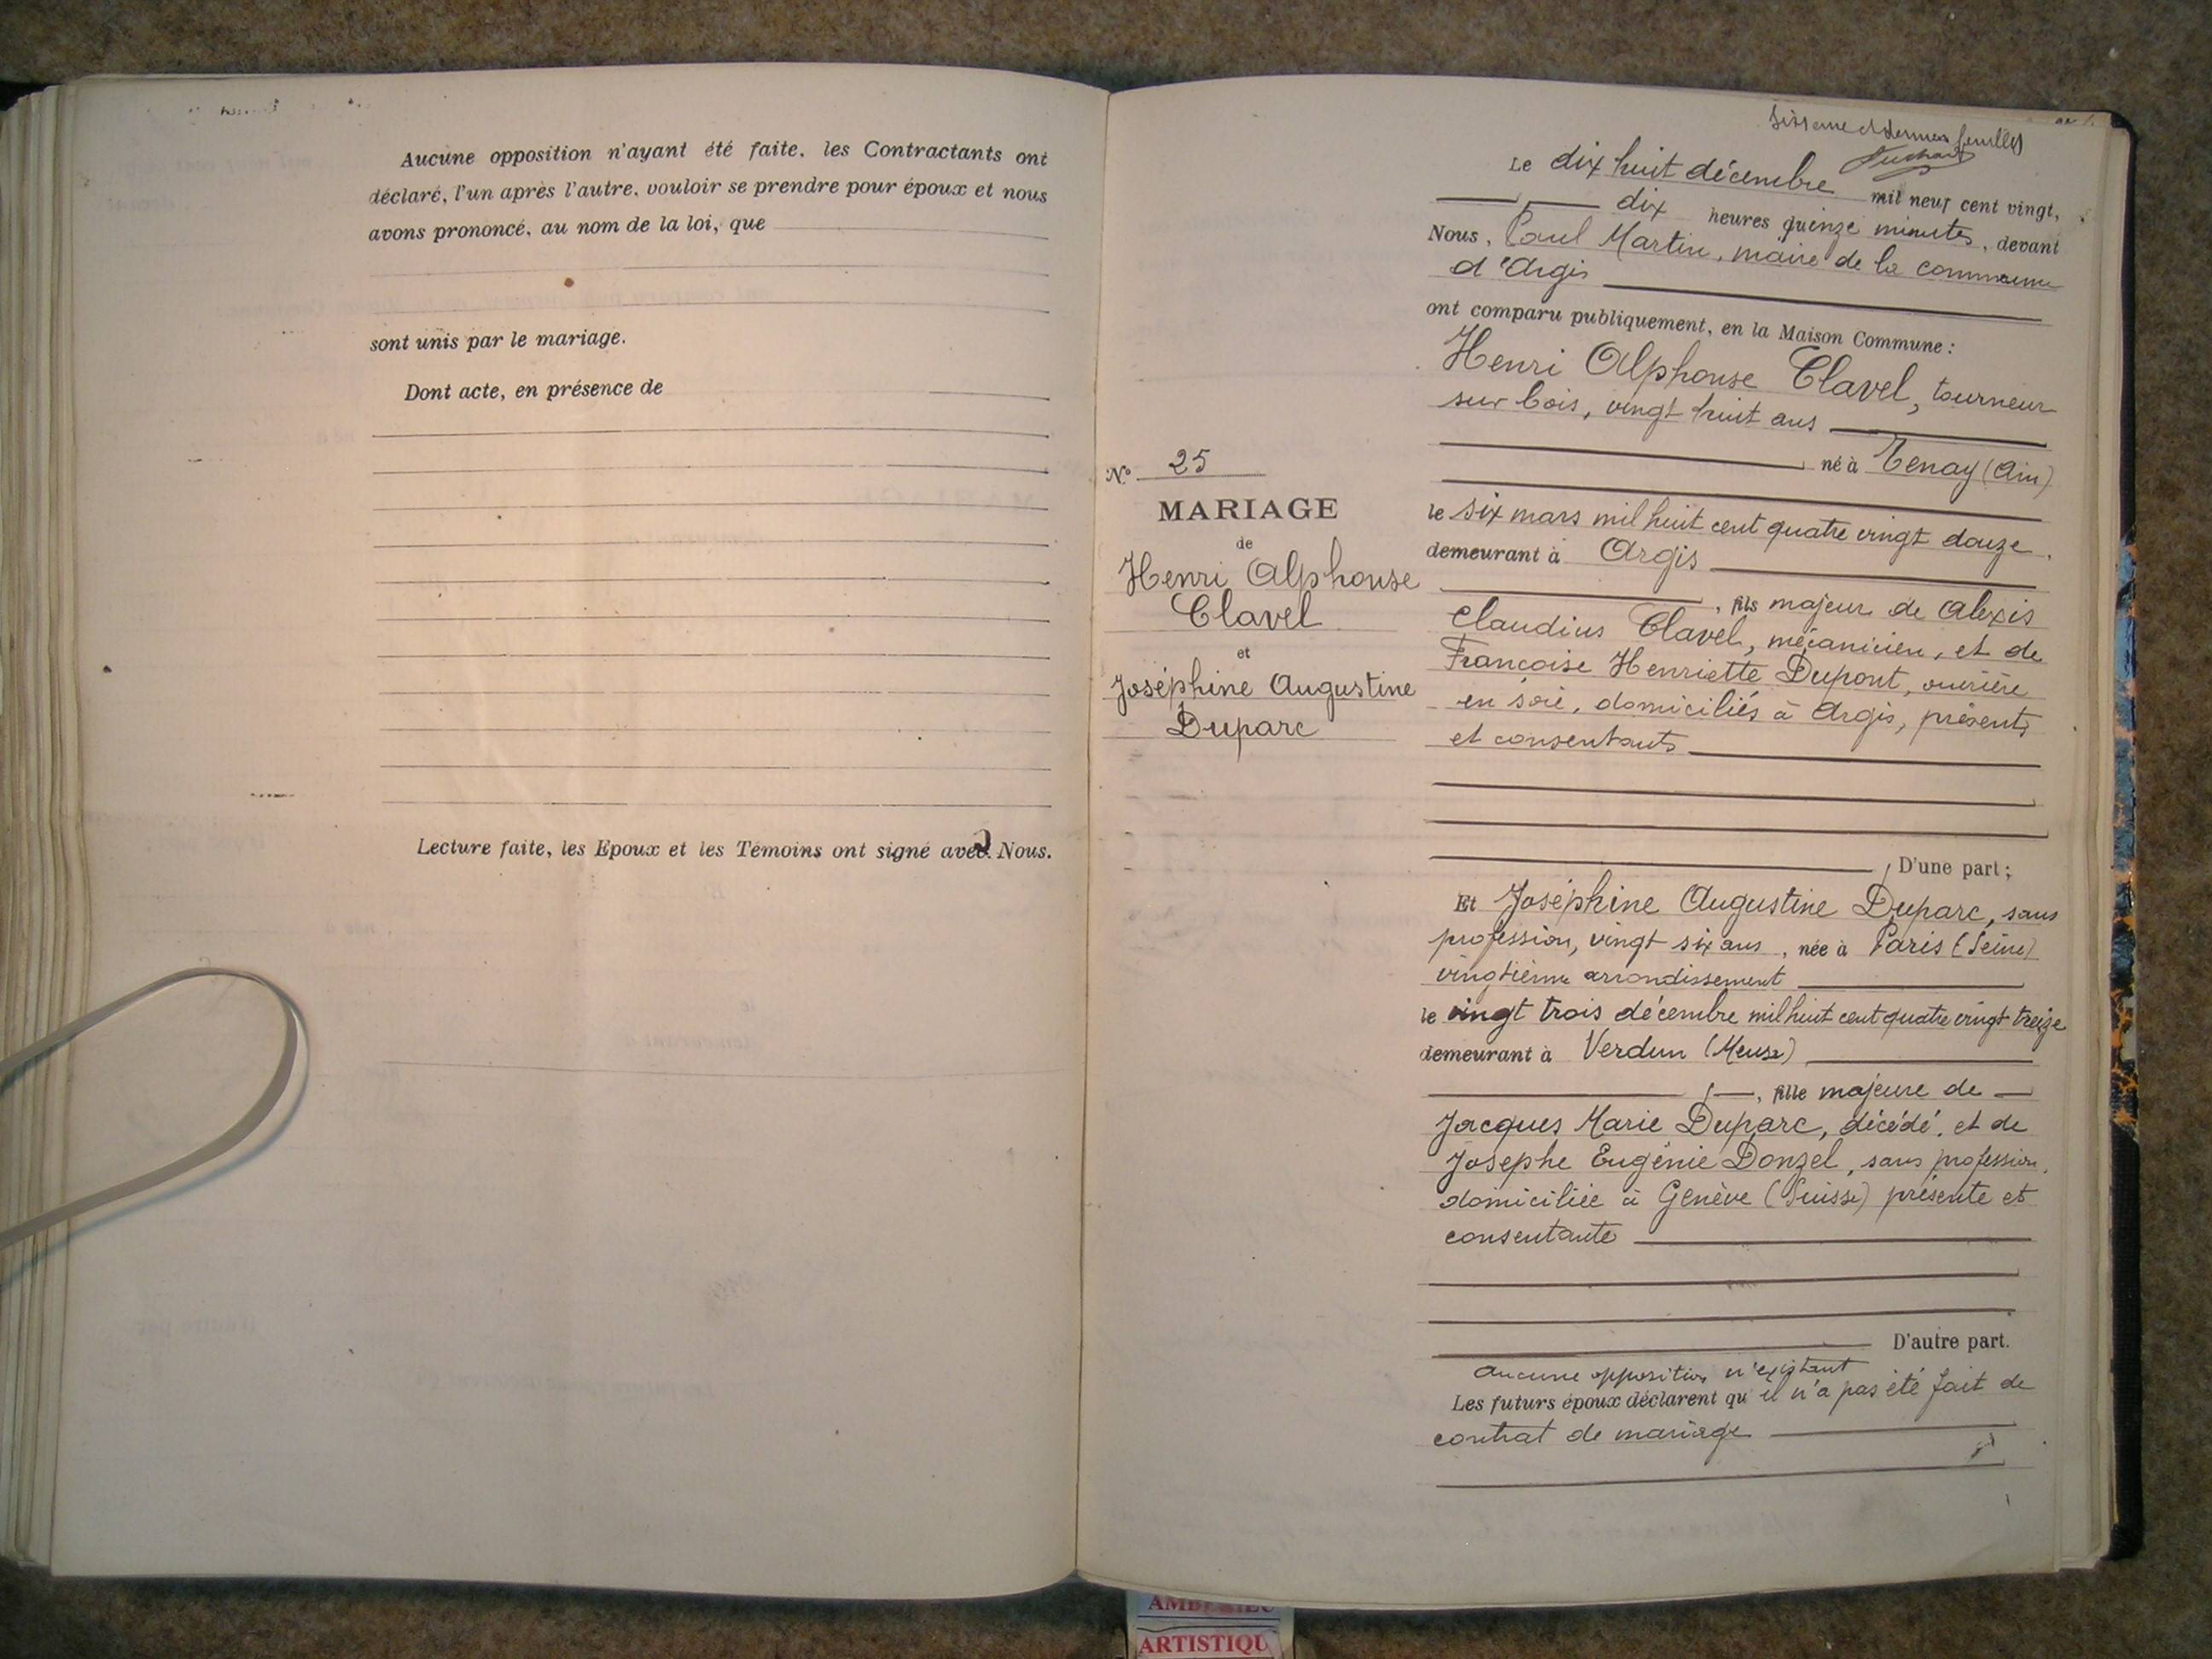 Aucune opposition n'ayant été faite, les Contractants ont
déclaré, l'un après l'autre, vouloir se prendre pour époux et nous
avons prononcé, au nom de la loi, que
sont unis par le mariage.
Dont acte, en présence de
Lecture faite, les Epoux et les Témoins ont signé avec Nous.
N° 25
MARIAGE
de
Henri Alphonse
Clavel
et
Joséphine Augustine
Duparc
feuillet
Le dix huit décembre mil neuf cent vingt,
dix heures quinze minutes, devant
Nous, Paul Martin, maire de la commune
d'Argis
ont comparu publiquement, en la Maison Commune :
Henri Alphonse Clavel, tourneur
sur bois, vingt huit ans
né à Tenay (Ain)
le six mars mil huit cent quatre vingt douze,
demeurant à Argis
, fils majeur de Alexis
Claudius Clavel, mécanicien, et de
Françoise Henriette Dupont, ouvrière
en soie, domiciliés à Argis, présents
et consentants
D'une part ;
Et Joséphine Augustine Duparc, sans
profession, vingt six ans, née à Paris (Seine)
vingtième arrondissement
le vingt trois décembre mil huit cent quatre vingt treize
demeurant à Verdun (Meuse)
, fille majeure de
Jacques Marie Duparc, décédé, et de
Josephe Eugénie Donzel, sans profession,
domiciliée à Genève (Suisse) présente et
consentante
D'autre part.
Aucune opposition n'existant
Les futurs époux déclarent qu'il n'a pas été fait de
contrat de mariage
ARTISTIQU